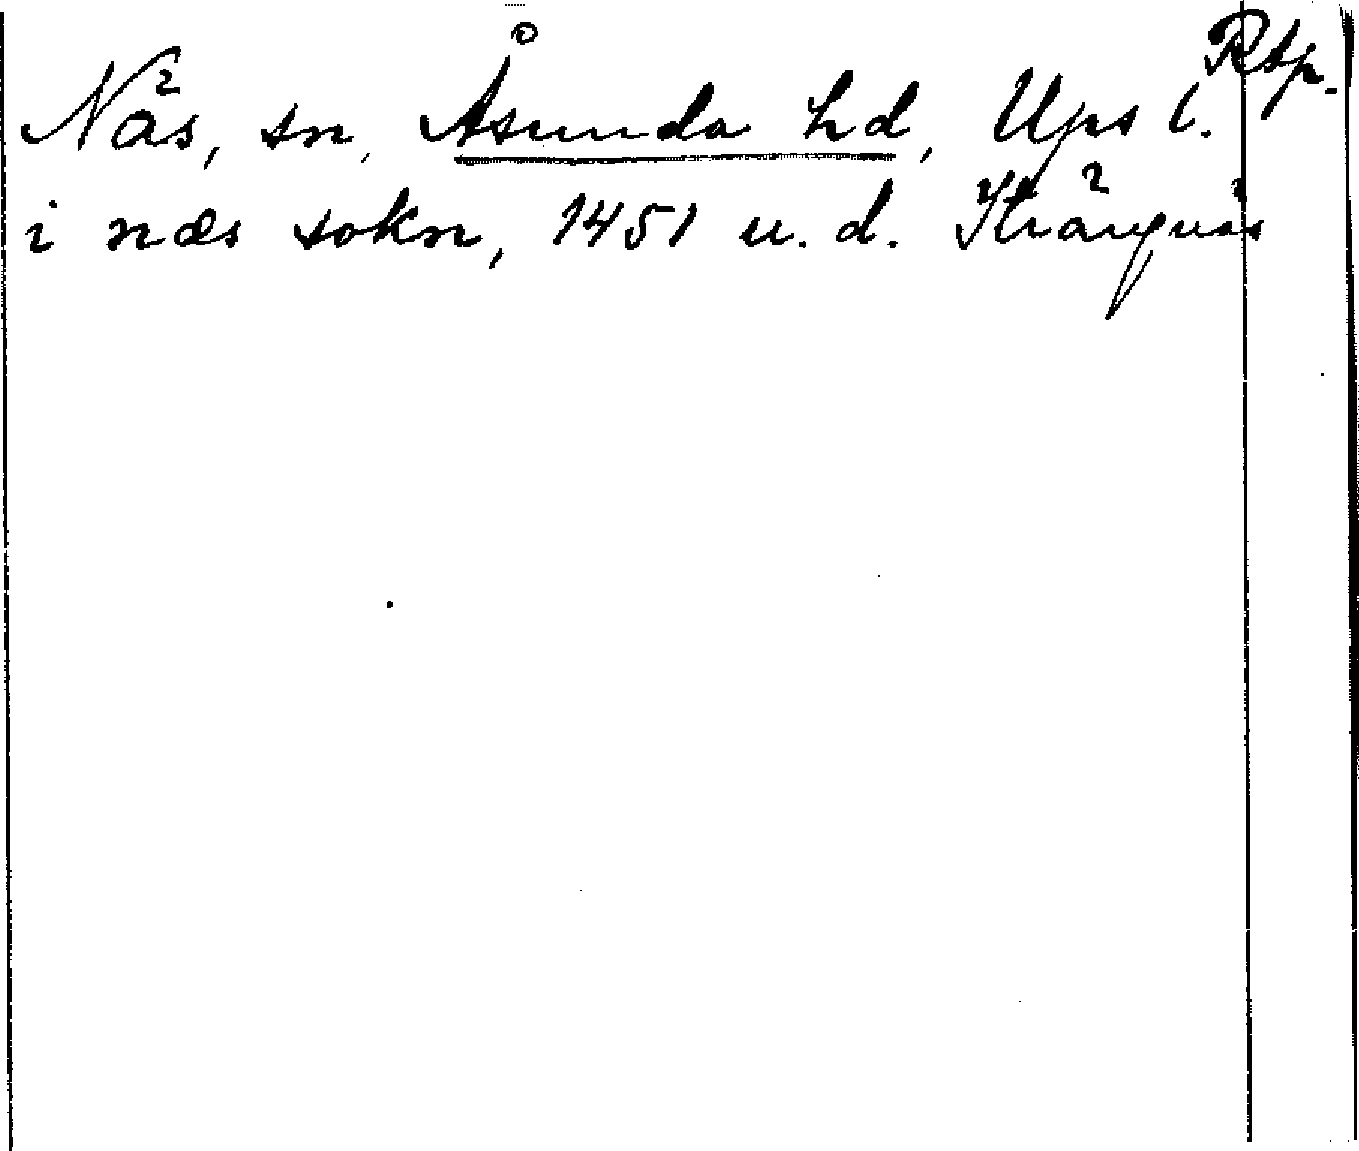 Rtp.
Näs, sn, Åsunda hd, Ups l.
i næs sokn, 1451 u. d. Strängnäs